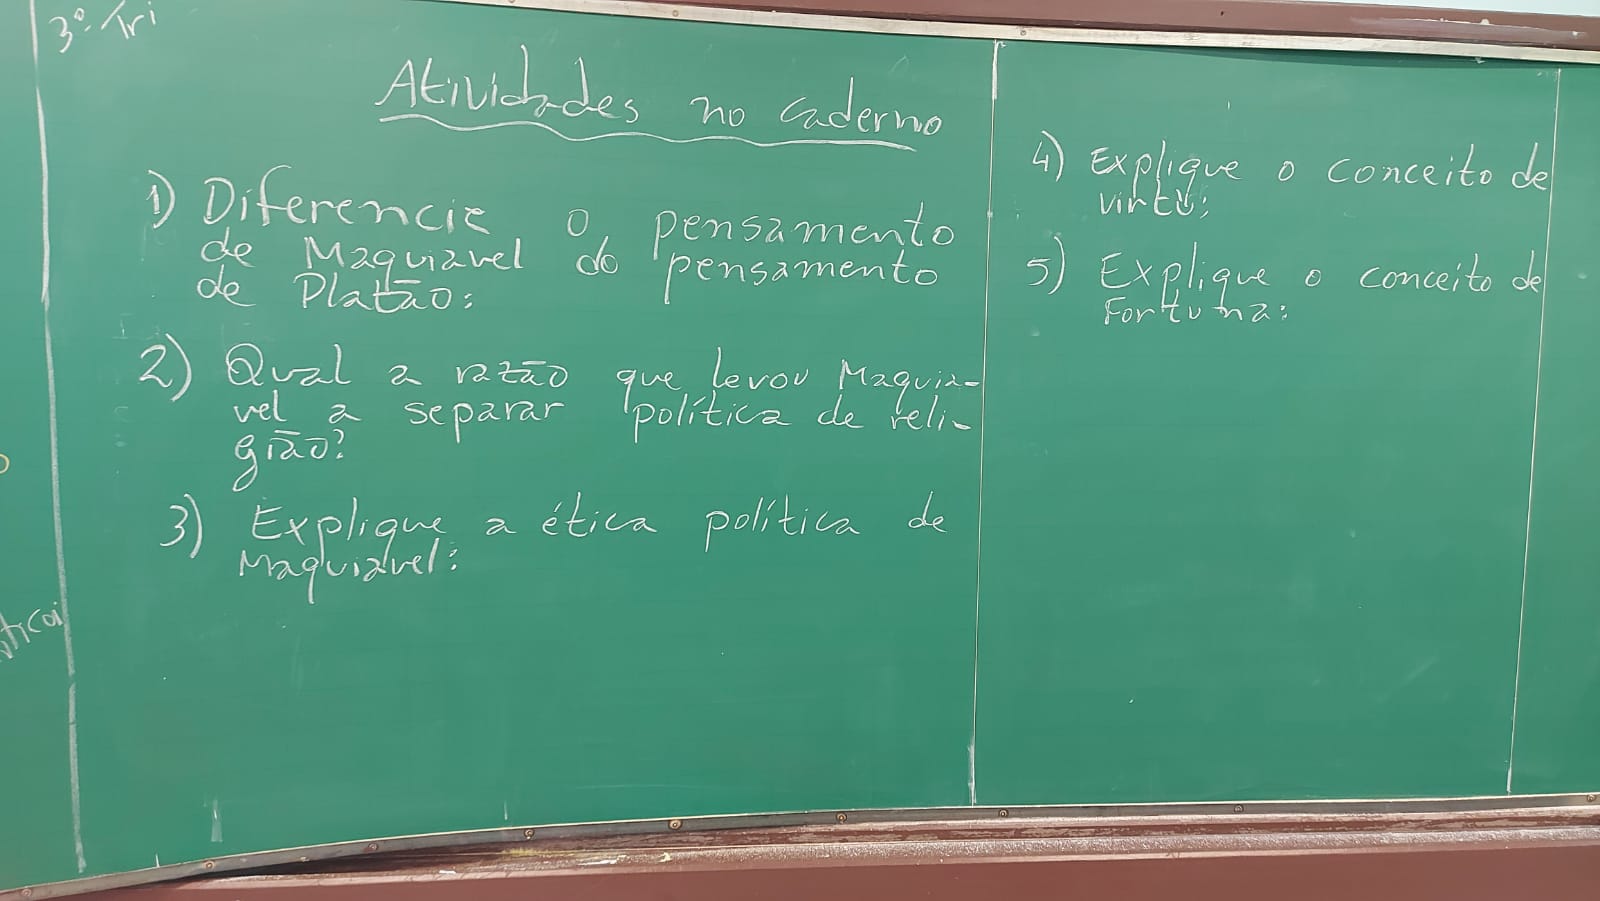 3º Tri
Atividades no caderno
1) Diferencie o pensamento
de Maquiavel do pensamento
de Platão:
2) Qual a razão que levou Maquia-
vel a separar política de reli-
gião?
3) Explique a ética política de
Maquiavel:
4) Explique o conceito de
virtù:
5) Explique o conceito de
Fortuna: